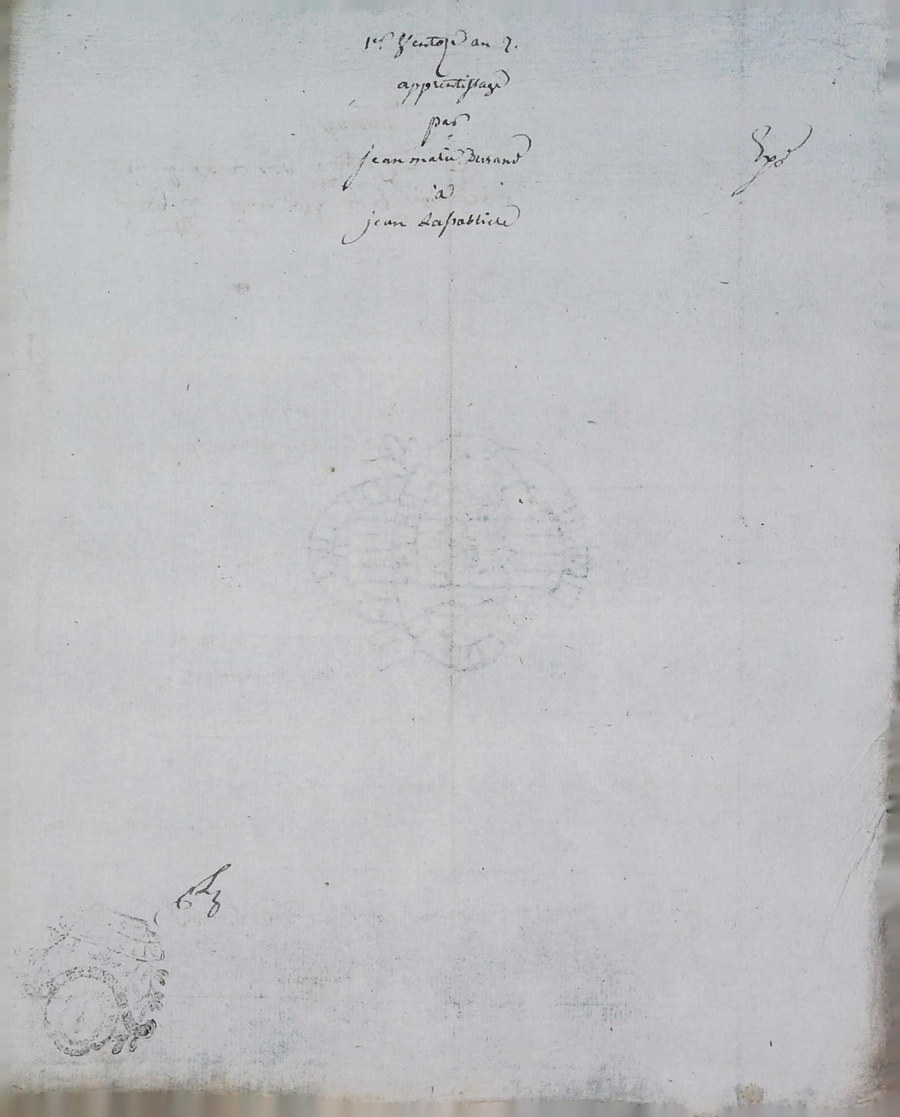 1er Ventose an 7.
apprentissage
par
jean marie Durand
à
jean Lasabliere
Expé